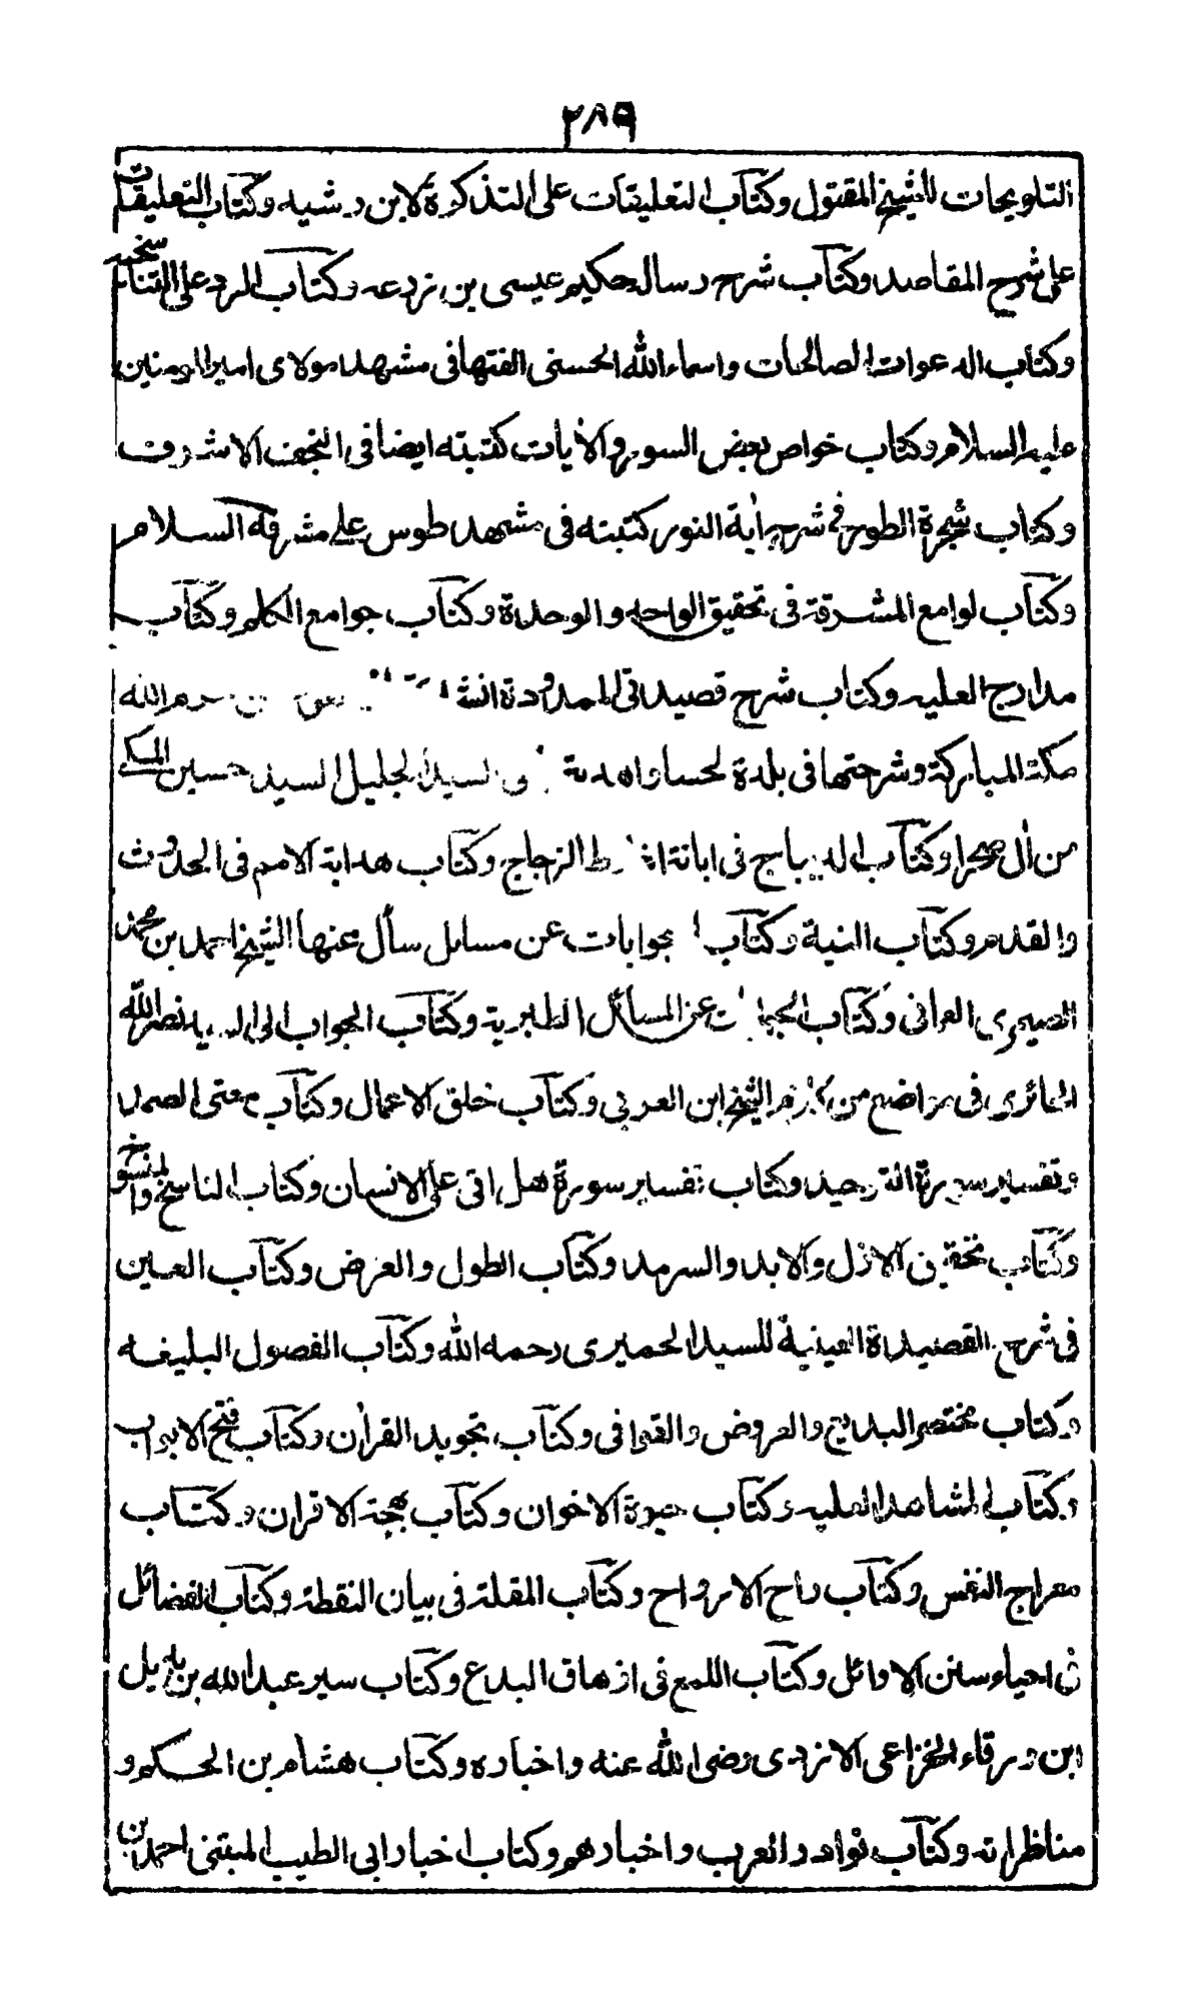 ٢٨٩
التلويحات للشيخ المقتول وكتاب التعليقات على التذكرة لابن رشيه وكتاب التعليقات
على شرح المقاصد وكتاب شرح رسالة حكيم عيسى بن زرعه وكتاب الرد على التناسخيه
وكتاب الدعوات الصالحات واسماء الله الحسنى الفتها فى مشهد مولاى امير المومنين
عليه السلام وكتاب خواص بعض السور والأيات كتبته ايضا فى النجف الاشرف
وكتاب شجرة الطور فى شرح أية النور كتبته فى مشهد طوس على مشرفه السلام
وكتاب لوامع المشرقة فى تحقيق الواحد والوحدة وكتاب جوامع الكلم وكتاب
مدارج العليه وكتاب شرح قصيدتى الممدودة حرم الله
مكة المباركة وشرحتها فى بلدة لحسا السيد الجليل السيد حسين المكے
من أل صحرا وكتاب الديباج فى ابانة الزجاج وكتاب هداية الامم فى الحدوث
والقدم وكتاب النية وكتاب جوابات عن مسايل سأل عنها الشيخ احمد بن محمد
الصيمرى العمانى وكتاب عن المسائل الطبرية وكتاب الجواب الى السيد نصر الله
الحائرى فى مواضع من الشيخ ابن العربى وكتاب خلق الاعمال وكتاب معنى الصمد
وتفسير سورة التوحيد وكتاب تفسير سورة هل اتى على الانسان وكتاب الناسخ والمنسوخ
وكتاب تحقيق الازل والابد والسرمد وكتاب الطول والعرض وكتاب العين
فى شرح القصيداة العينية للسيد الحميرى رحمه الله وكتاب الفصول البليغه
وكتاب مختصر البديع والعروض والقوافى وكتاب تجويد القرأن وكتاب فتح الابواب
وكتاب المشاهد العليه وكتاب حيوة الاخوان وكتاب بهجة الاقران وكتاب
معراج النفس وكتاب راح الارواح وكتاب المقلة فى بيان النقطة وكتاب الفضائل
فى احياء سنن الاوائل وكتاب اللمع فى ازهاق البدع وكتاب سير عبد الله بن بديل
ابن ورقاء الخزاعى الازدى رضى الله عنه واخباره وكتاب هشام بن الحكم و
مناظراته وكتاب نوادر العرب واخبارهم وكتاب اخبار ابى الطيب المتبنى احمد بن